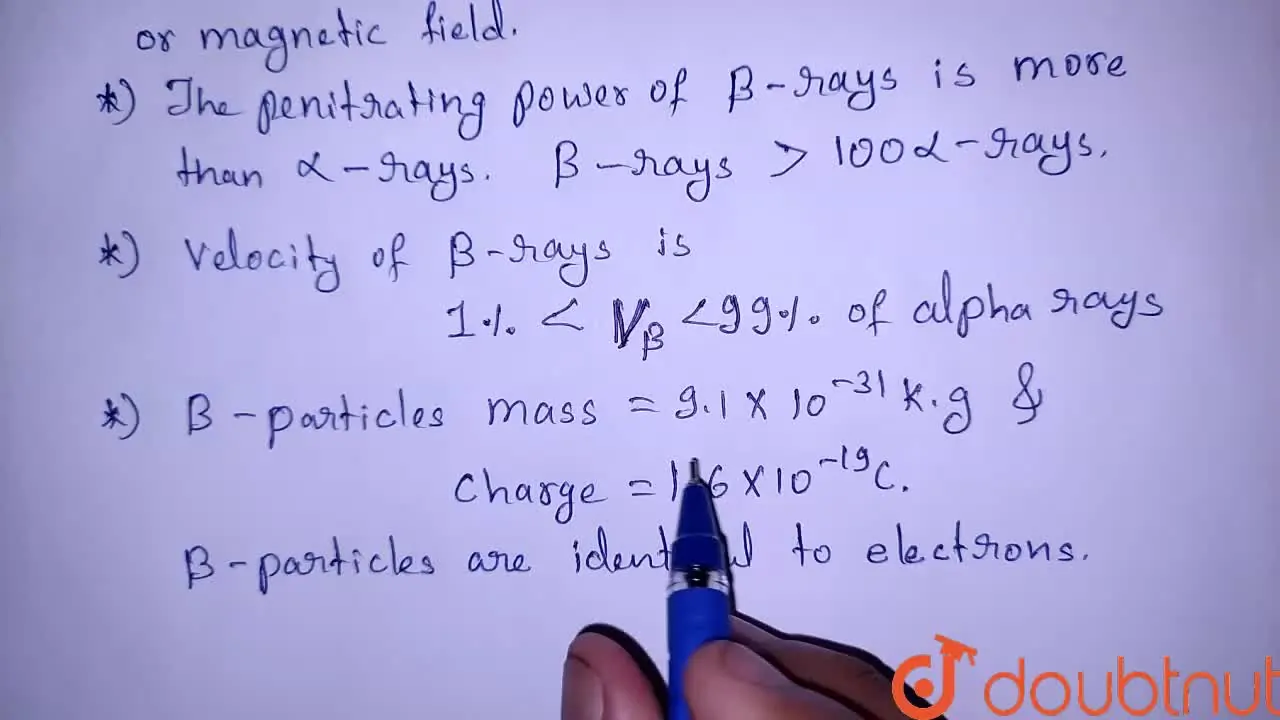 or magnetic field.
*) The penitrating power of β-rays is more
than α-rays. β-rays > 100α-rays.
*) Velocity of β-rays is
1% < Vβ < 99% of alpha rays
*) β-particles mass = 9.1 × 10⁻³¹ k.g &
Charge = 1.6 × 10⁻¹⁹ C.
β-particles are to electrons.
doubtnut